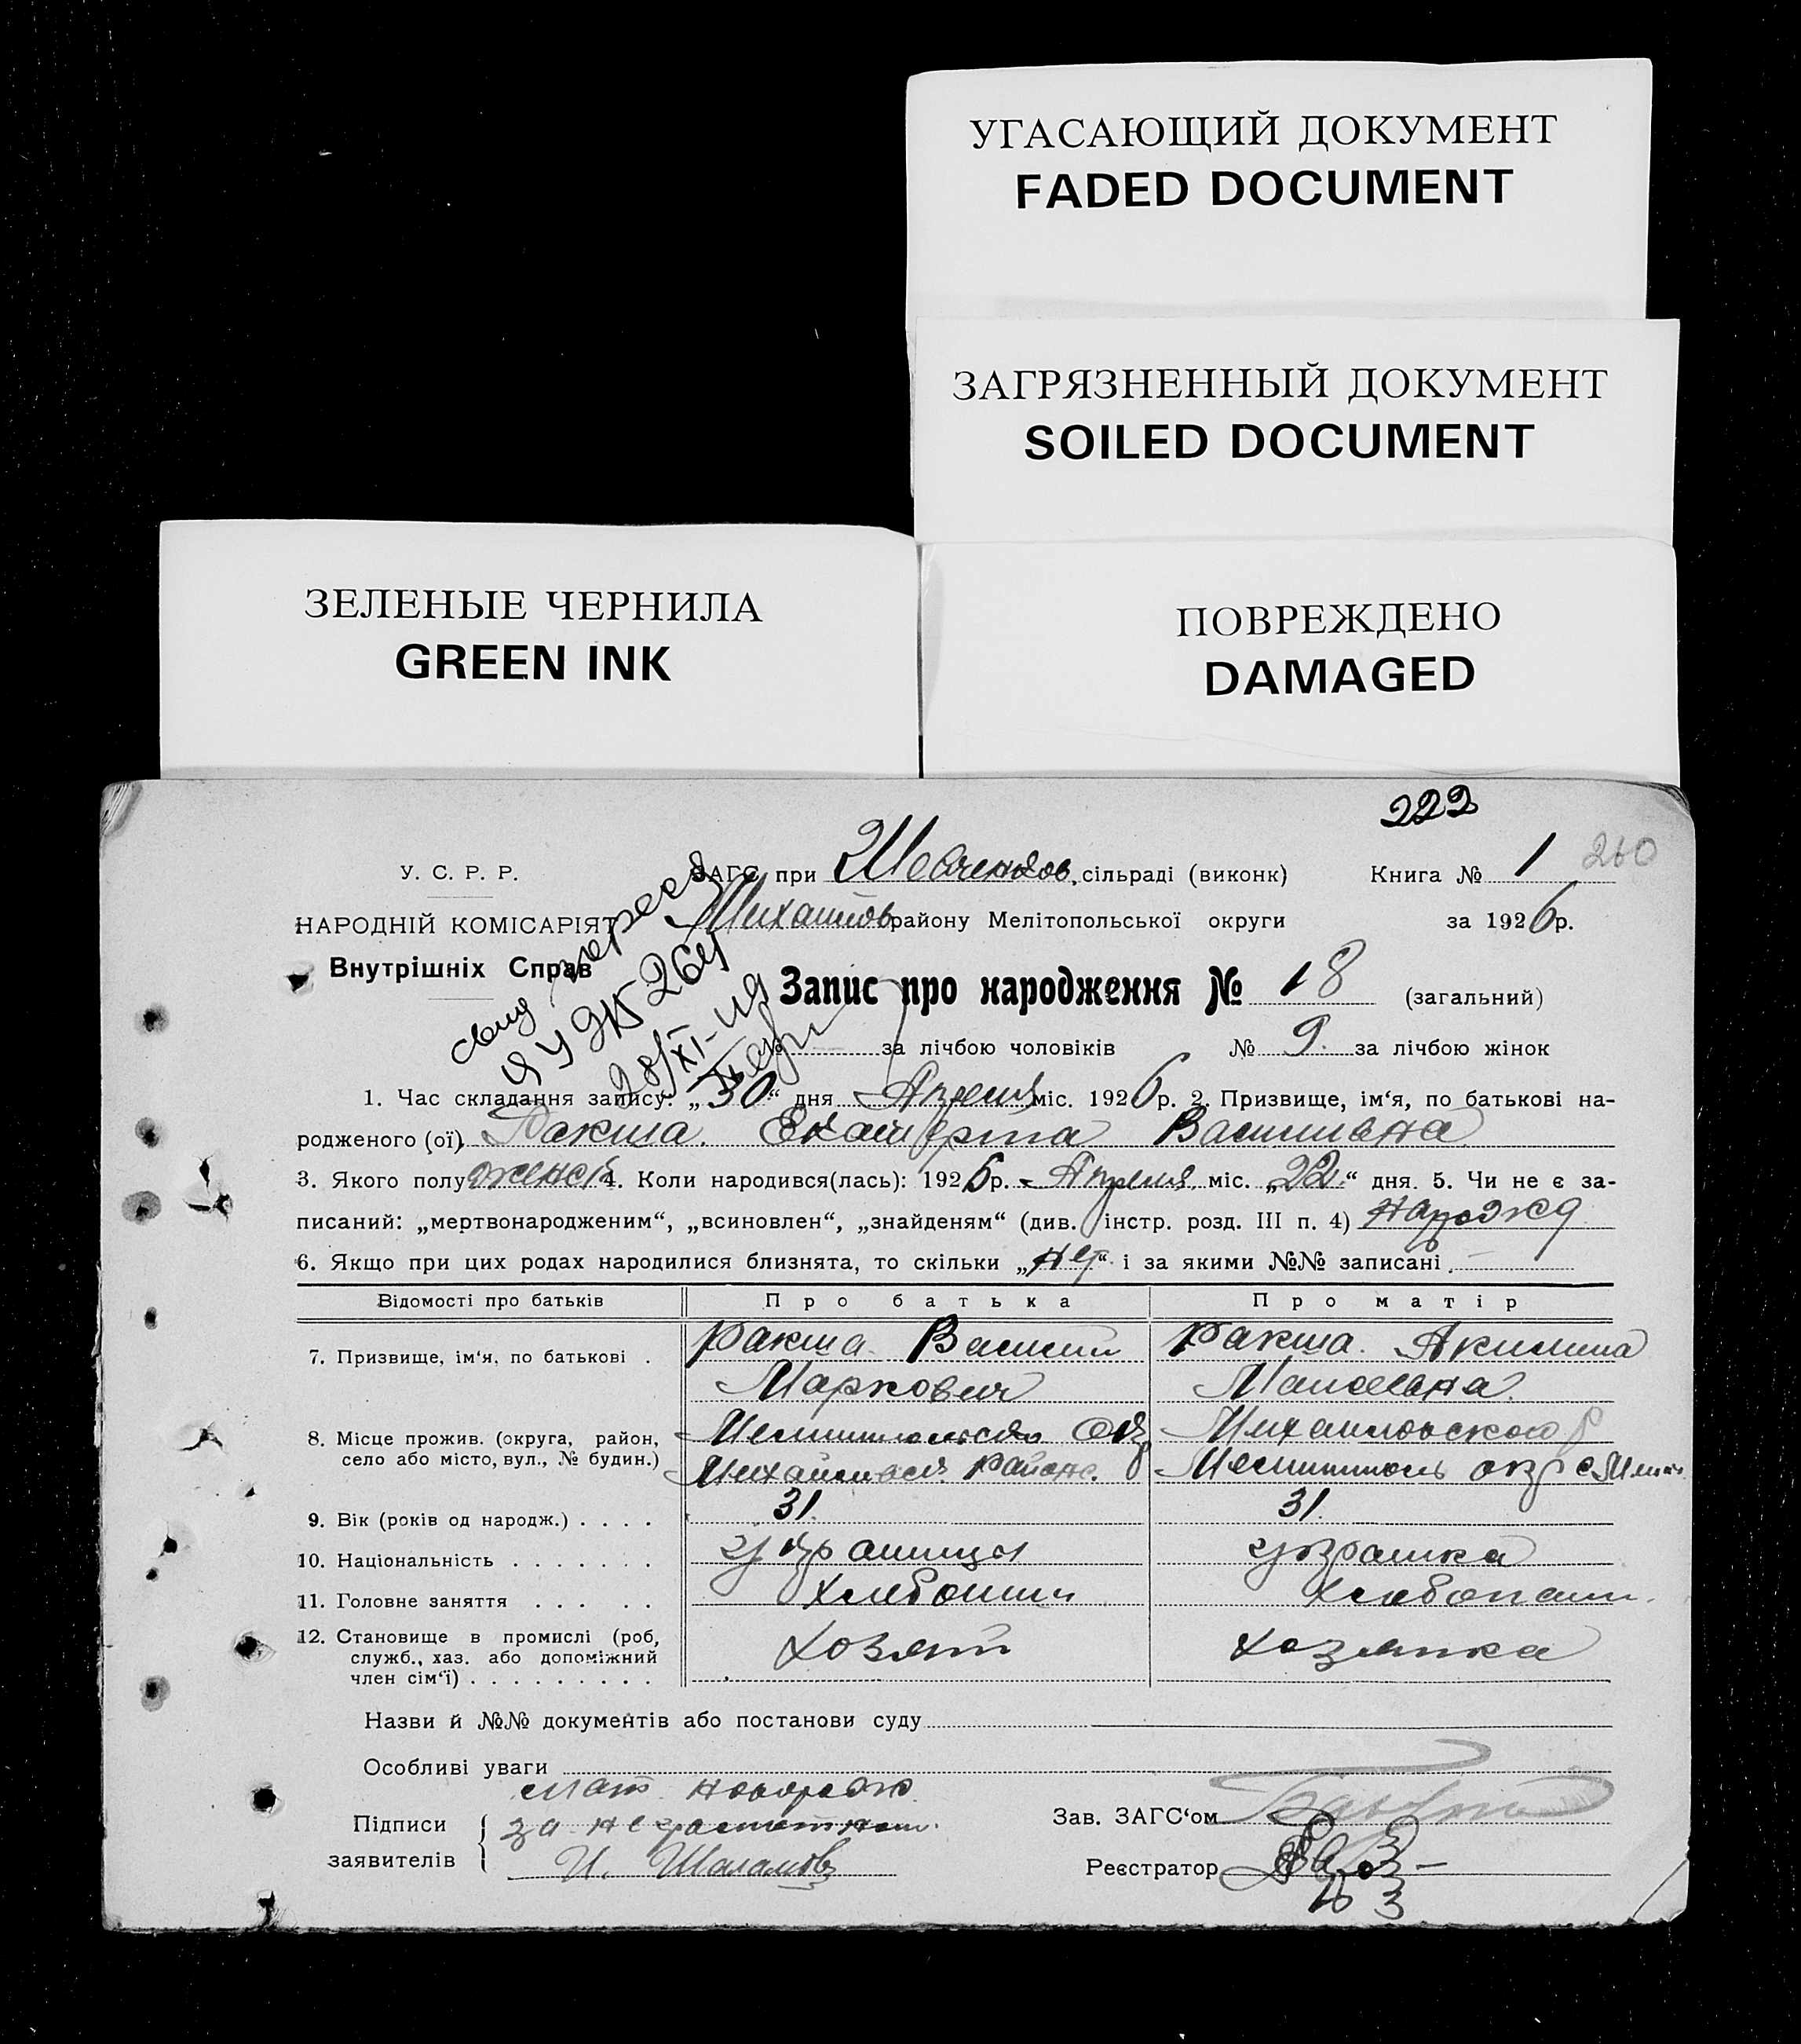 УГАСАЮЩИЙ ДОКУМЕНТ
FADED DOCUMENT
ЗАГРЯЗНЕННЫЙ ДОКУМЕНТ
SOILED DOCUMENT
ЗЕЛЕНЫЕ ЧЕРНИЛА
GREEN INK
ПОВРЕЖДЕНО
DAMAGED
222
У. С. Р. Р.
ЗАГС при Шевченков. сільраді (виконк) Книга № 1 260
НАРОДНІЙ КОМІСАРІЯТ Михайлов району Мелітопольської округи за 1926р.
Внутрішніх Справ
Запис про народження № 18 (загальний)
№ за лічбою чоловіків № 9. за лічбою жінок
1. Час складання запису: „30“ дня Апреля міс. 1926р. 2. Призвище, ім‘я, по батькові на-
родженого (ої) Ракша. Екатерина Васильевна
3. Якого полу женск 4. Коли народився(лась): 1926р. Апреля міс. „22“ дня. 5. Чи не є за-
писаний: „мертвонародженим“, „всиновлен“, „знайденям“ (див. інстр. розд. III п. 4)
6. Якщо при цих родах народилися близнята, то скільки „нет“ і за якими №№ записані
Відомості про батьків Про батька Про матір
7. Призвище, ім‘я, по батькові . Ракша. Василий Ракша. Акилина
Маркович
8. Місце прожив. (округа, район, Мелитопольск Окр Михайловского р
село або місто, вул., № будин.) Михайловск. района. Мелитополь окр
9. Вік (років од народж.) . . . . 31. 31.
10. Національність . . . . . . . украинцы украинка
11. Головне заняття . . . . . Хлебопаш Хлебопаш.
12. Становище в промислі (роб, Хозяин Хозяйка
служб., хаз. або допоміжний
член сім‘ї) . . . . . . . . .
Назви й №№ документів або постанови суду
Особливі уваги
Підписи за неграмотн
заявителів И. Шаламов
Зав. ЗАГС‘ом
Реєстратор